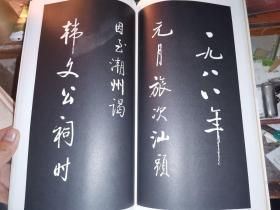 一九八八年
元月旅次汕頭
因至潮州謁
韩文公祠时